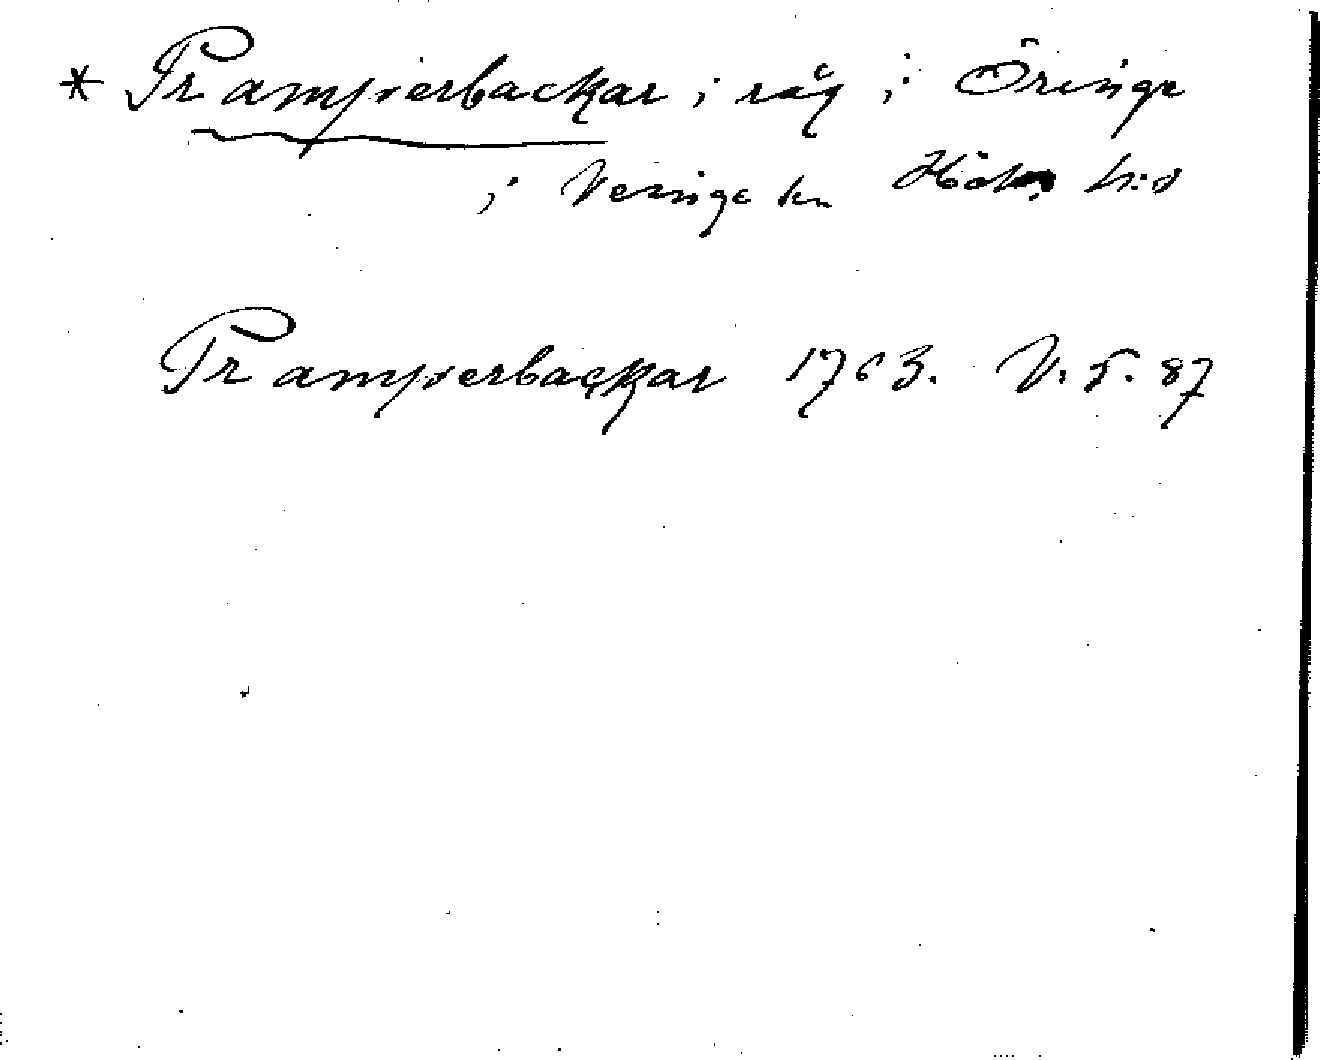 * Tramperbackar i råg i Öringe
i Veinge sn Höks hd
Tramperbackar 1763. V. s. 87